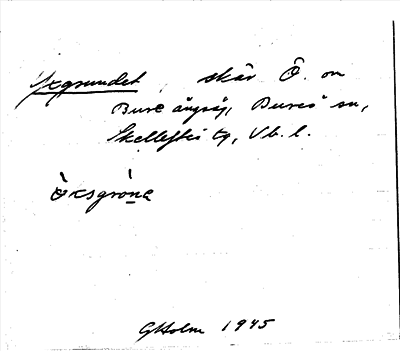 Yxgrundet, skär Ö. om
Bure ångsåg, Bureå sn,
Skellefteå tg, Vb. l.
Öksgröna
GHolm 1945